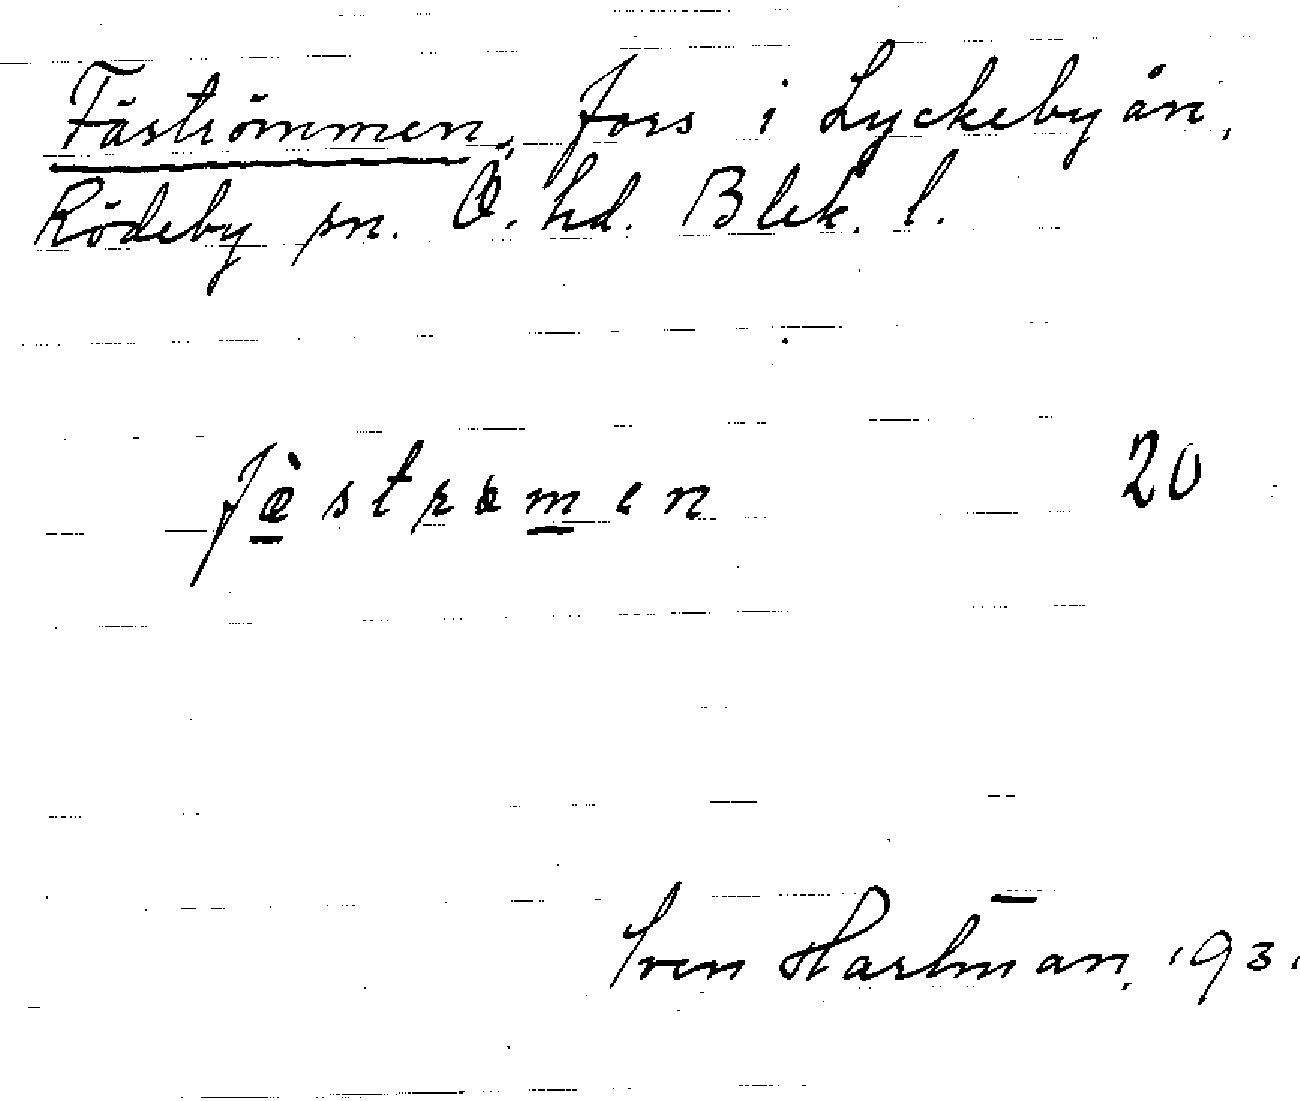 Fäströmmen, fors i Lyckebyån,
Rödeby sn. Ö. hd. Blek. l.
fæ̀strømen 20
Sven Hartman, 1931